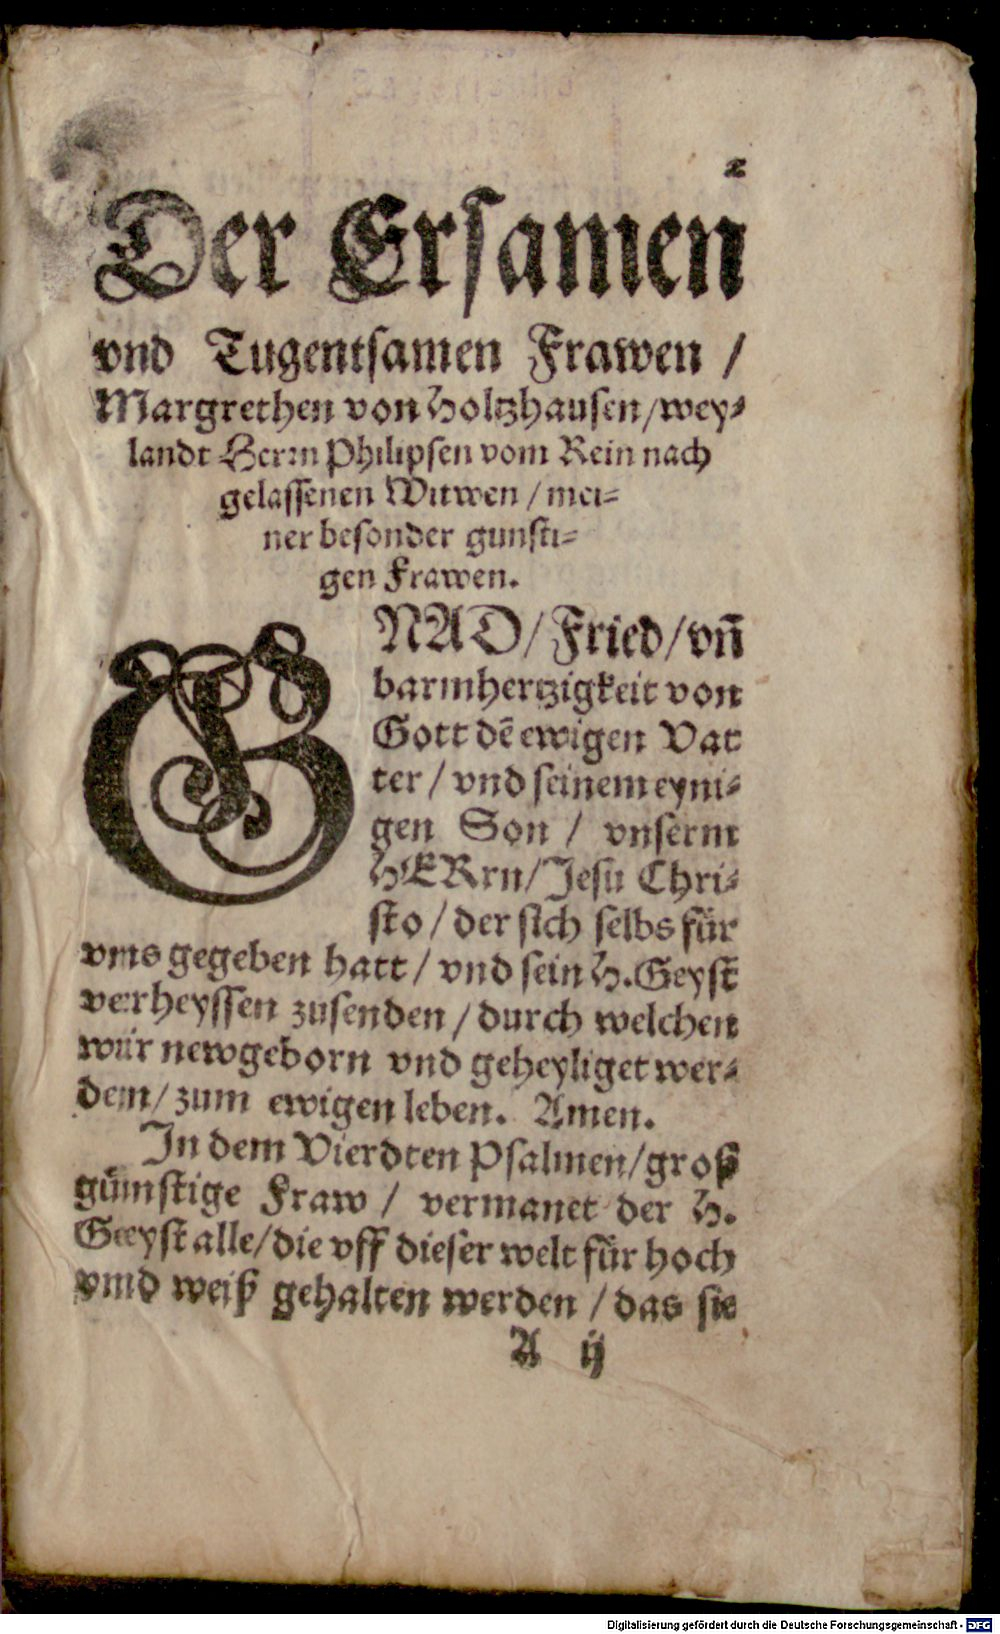 2
Der Ersamen
vnd Tugentsamen Frawen /
Margrethen von Holtzhausen / wey⸗
landt Herrn Philipsen vom Rein nach
gelassenen Witwen / mei⸗
ner besonder gunsti⸗
gen Frawen.
GNAD / Fried / vñ
barmhertzigkeit von
Gott dē ewigen Vat
ter / vnd seinem eyni⸗
gen Son / vnserm
HERrn / Jesu Chri⸗
sto / der sich selbs für
vns gegeben hatt / vnd sein H. Geyst
verheyssen zusenden / durch welchen
wür newgeborn vnd geheyliget wer⸗
den / zum ewigen leben. Amen.
In dem Vierdten Psalmen / groß
günstige Fraw / vermanet der H.
Geyst alle / die vff dieser welt für hoch
vnd weiß gehalten werden / das sie
A ij
Digitalisierung gefördert durch die Deutsche Forschungsgemeinschaft - DFG